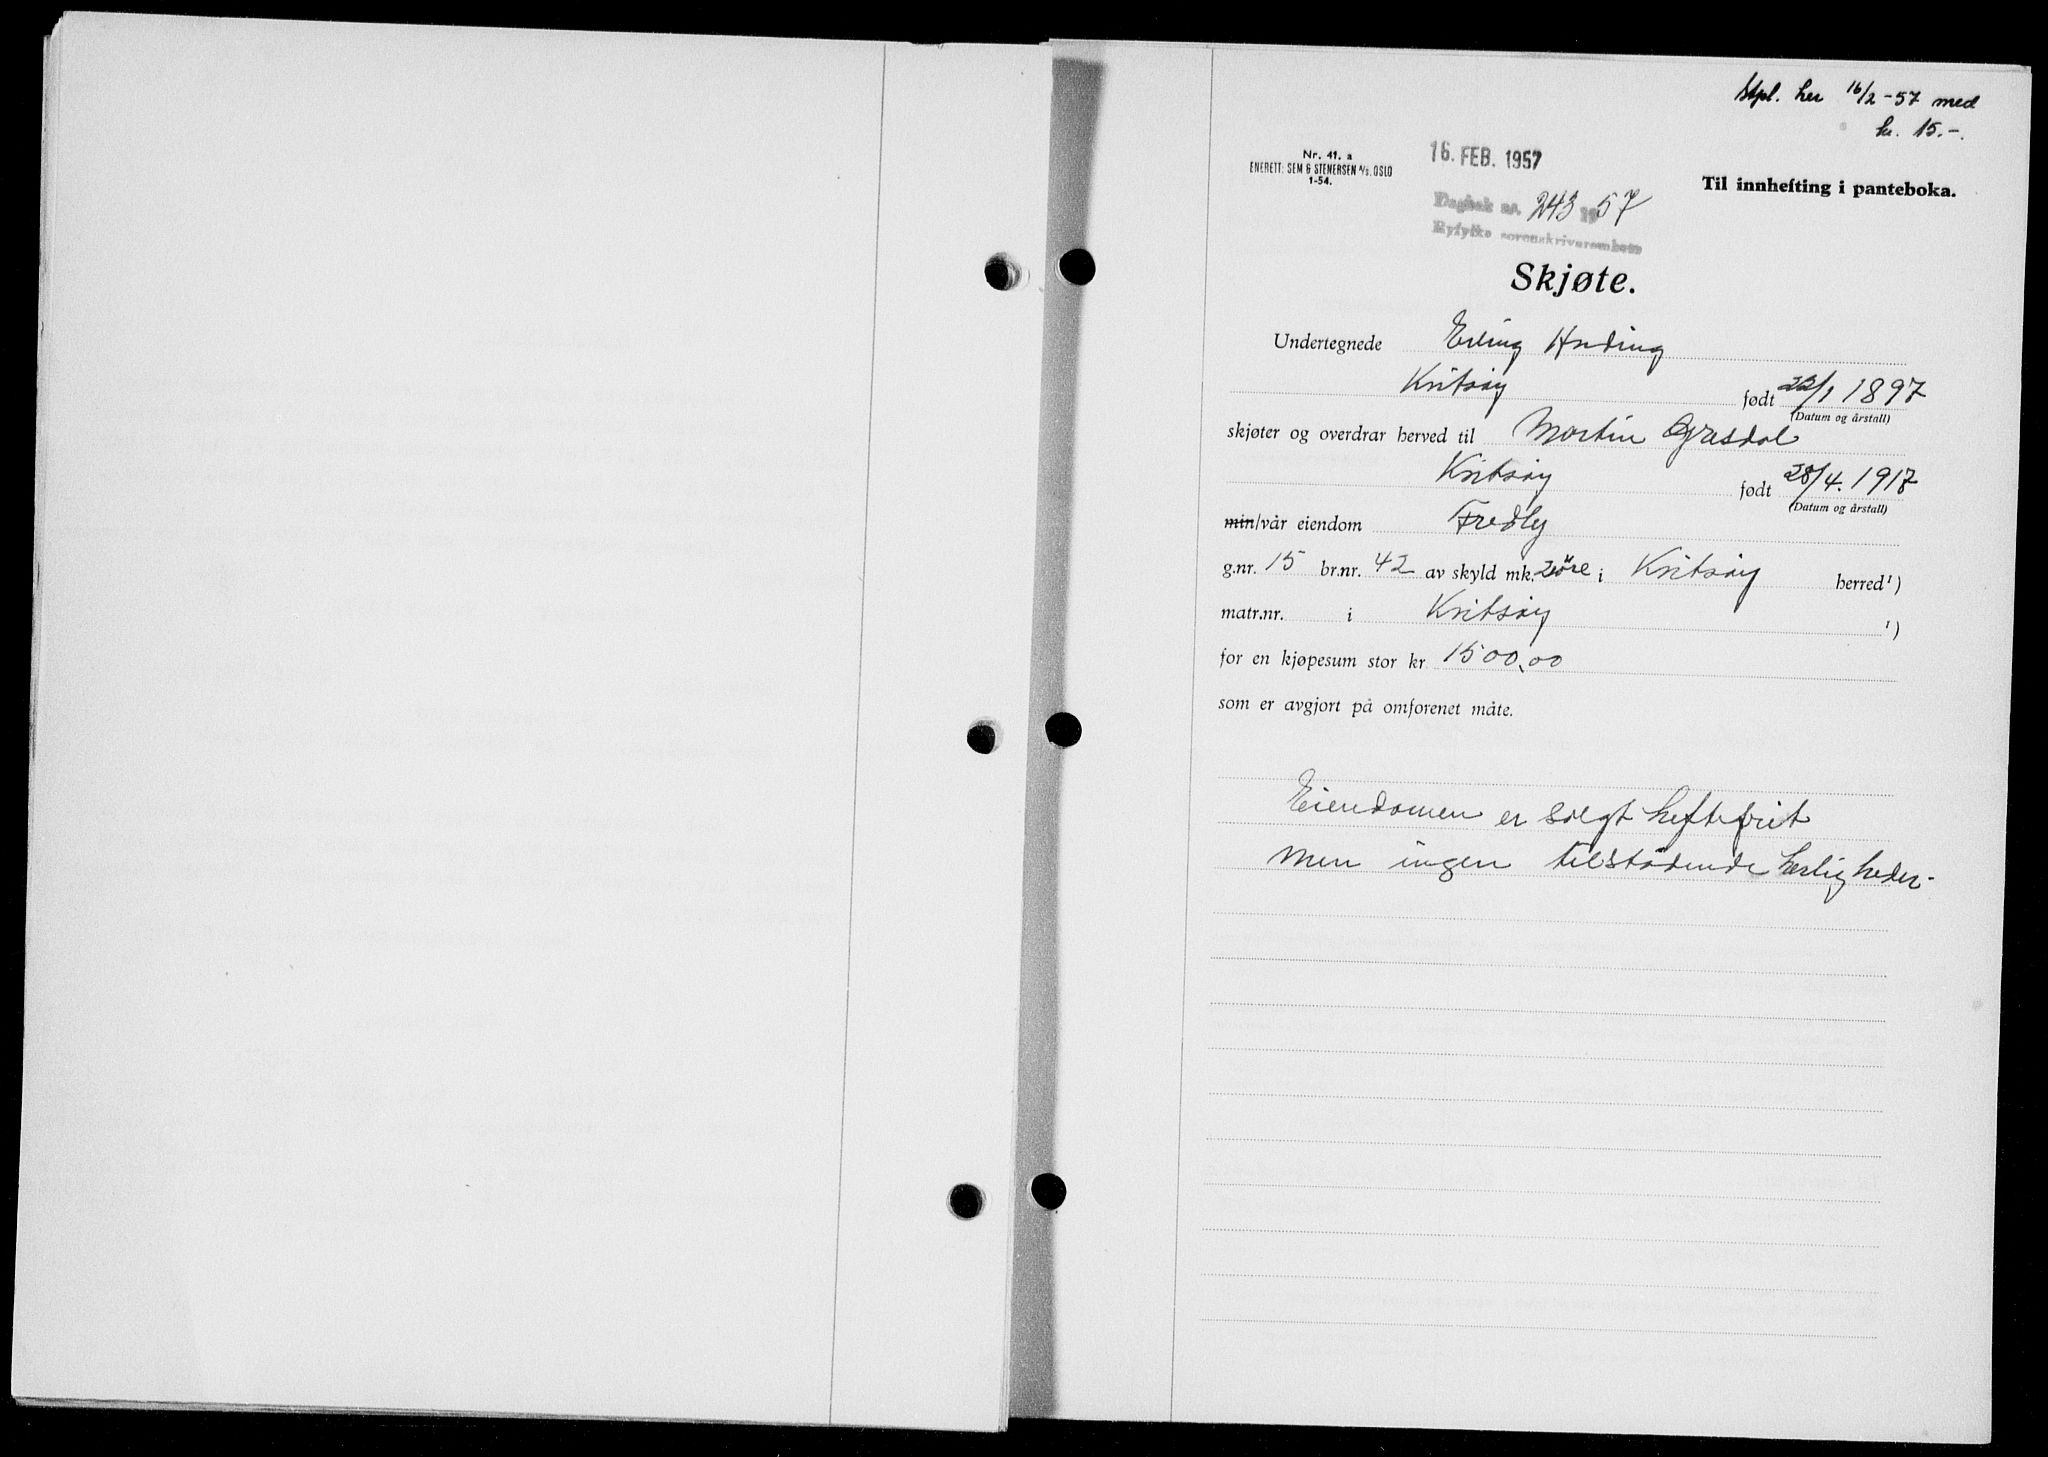 Stpl. her 16/2-57 med
kr. 15.-.
Nr. 41. a
ENERETT: SEM & STENERSEN A/S. OSLO
1-54.
16. FEB. 1957
Til innhefting i panteboka.
Dagbok nr. 243 1957
Ryfylke sorenskriverembete
Skjøte.
Undertegnede Erling Harding
Kvitsøy født 22/1 1897
(Datum og årstall)
skjøter og overdrar herved til Martin Gjesdal
Kvitsøy født 28/4. 1917
(Datum og årstall)
min/vår eiendom Fredly
g.nr. 15 br.nr. 42 av skyld mk. 2 öre i Kvitsøy herred ¹)
matr.nr. i Kvitsøy ¹)
for en kjøpesum stor kr 1500,00
som er avgjort på omforenet måte.
Eiendomen er solgt heftefrit
men ingen tilstødende herligheder-